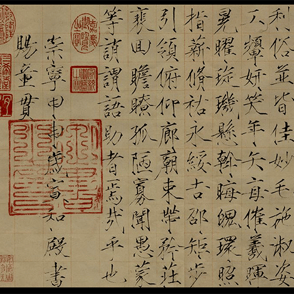 利俗並皆佳妙毛施淑姿
工顰妍笑年矢每催羲暉
晃曜琁璣縣斡晦魄環照
指薪脩祜永綏吉邵矩步
引領俯仰廊廟束帶矜莊
裵回瞻眺孤陋寡聞愚蒙
等誚謂語助者焉哉乎也
崇寧甲申歲宣和殿書
賜童貫